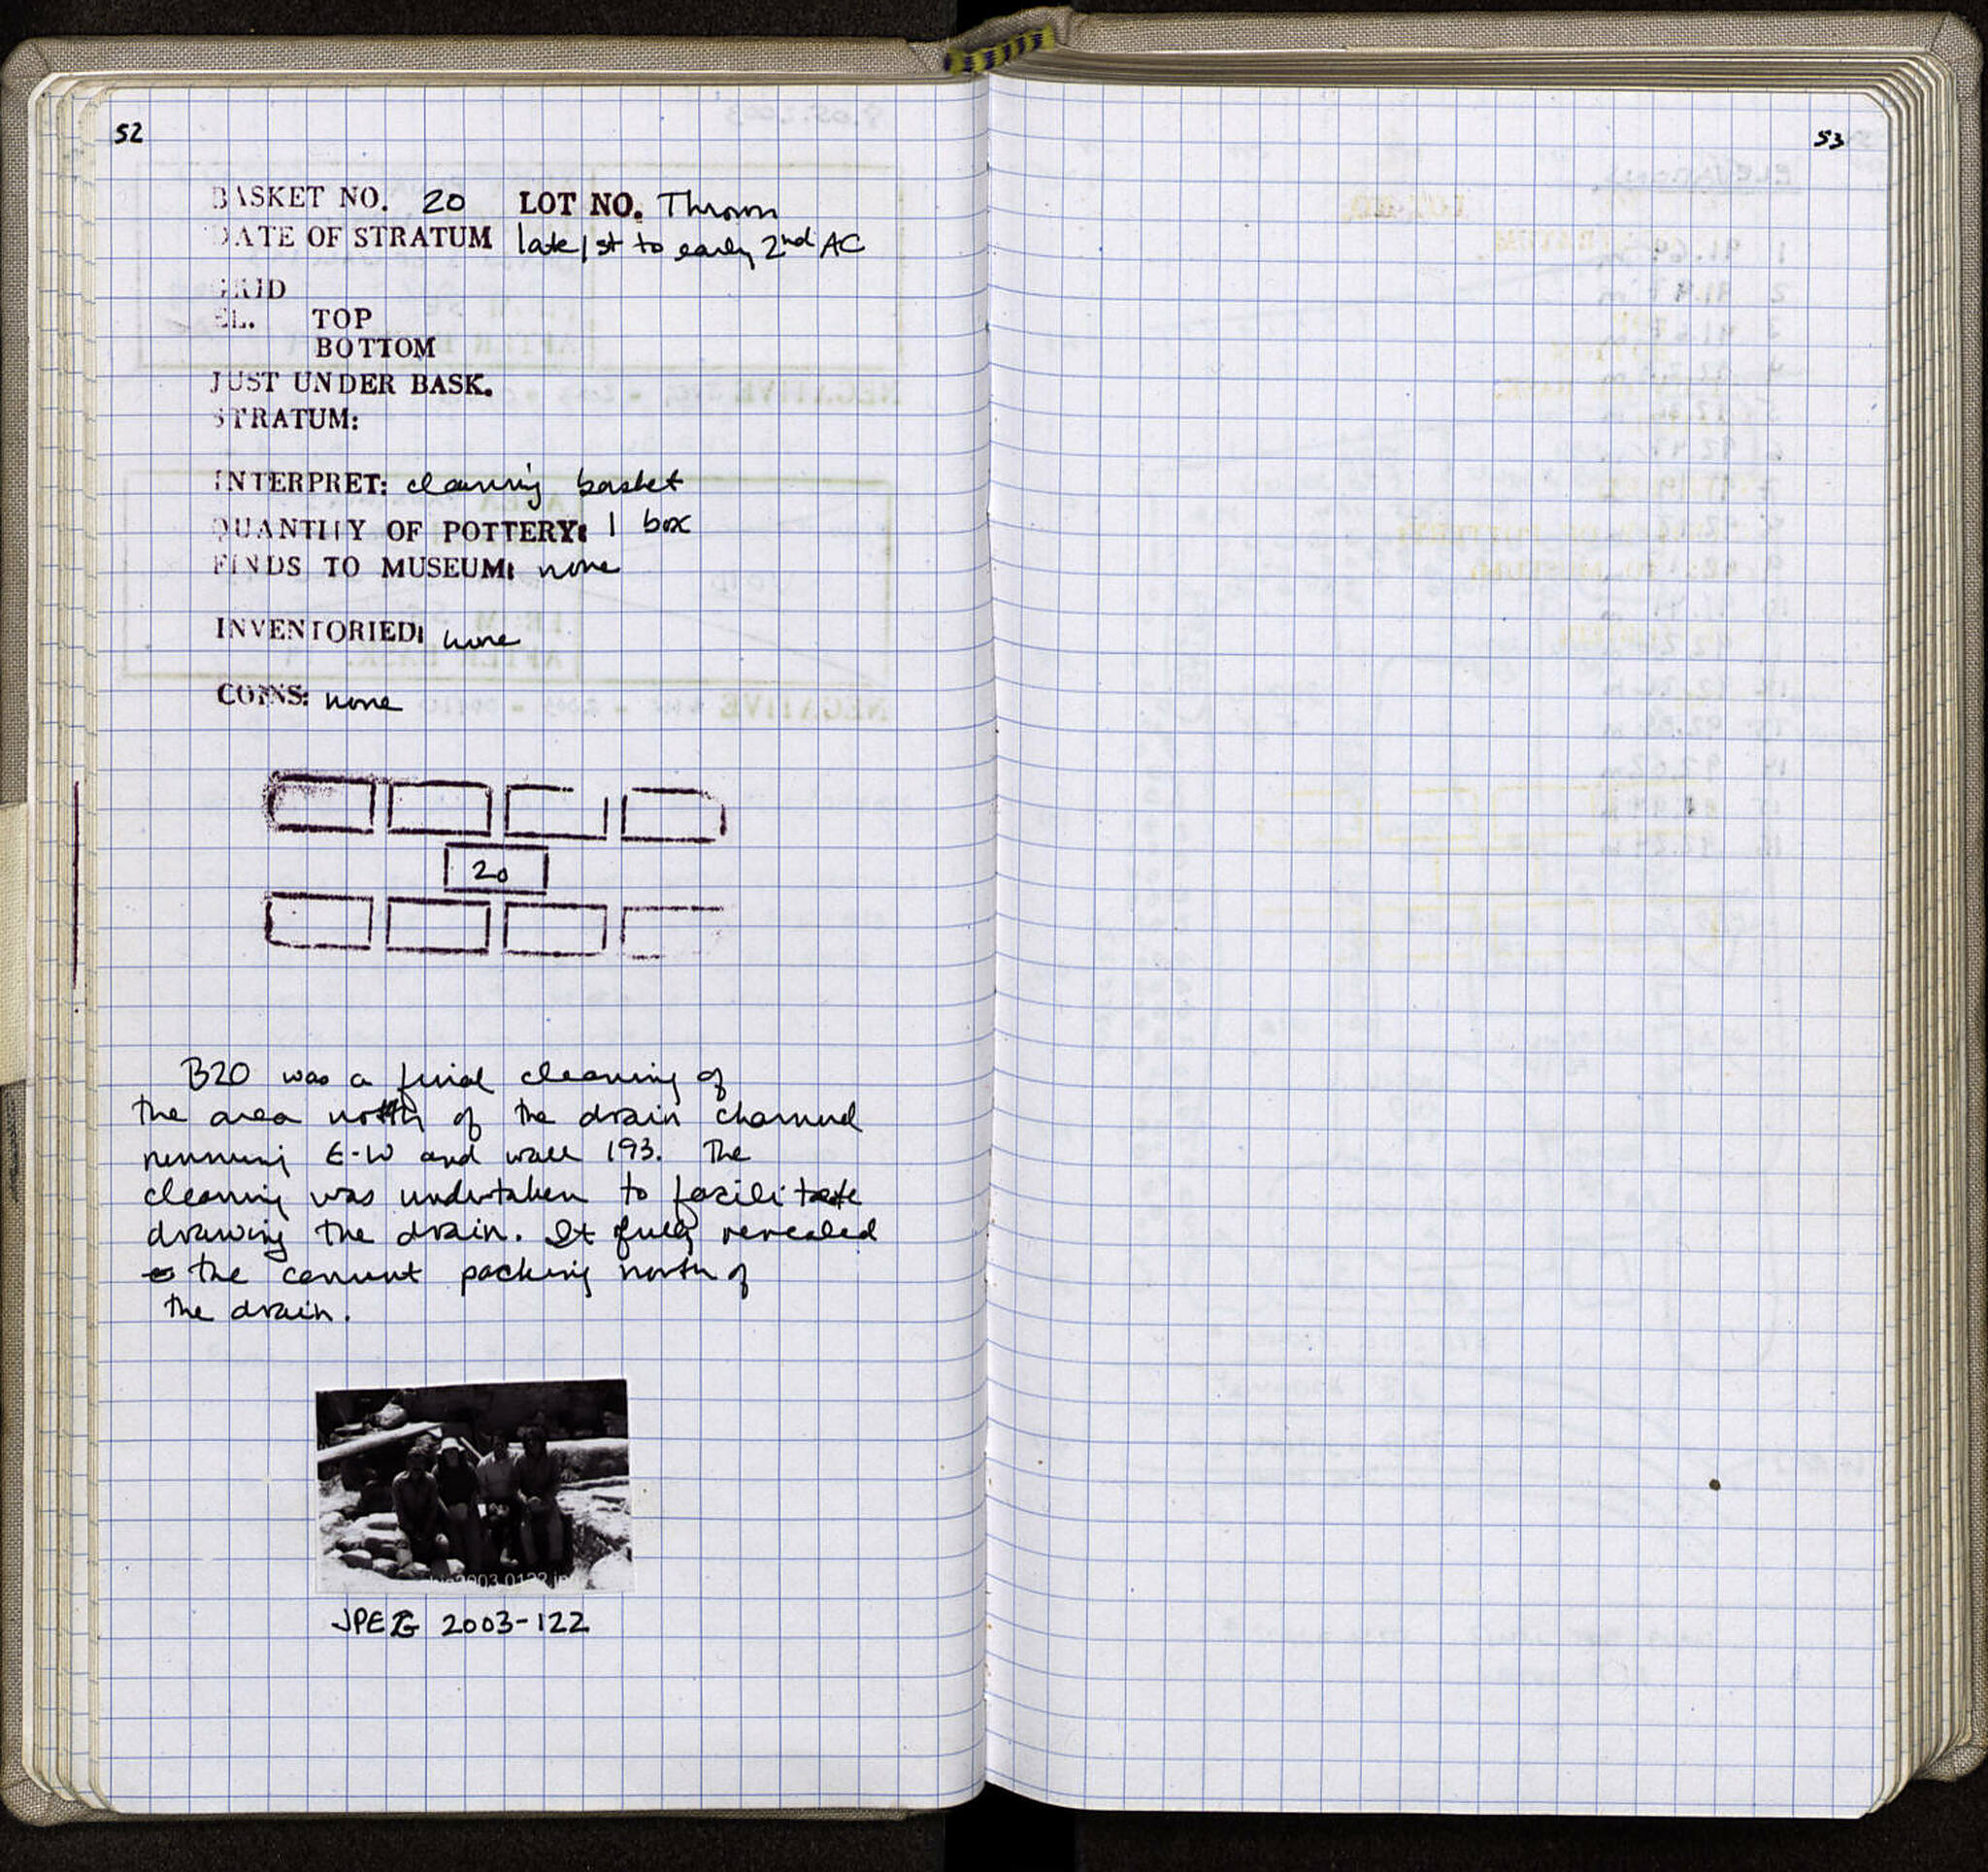 52
BASKET NO. 20 LOT NO. Thrown
DATE OF STRATUM late 1st to early 2nd AC
GRID
EL. TOP
BOTTOM
JUST UNDER BASK.
STRATUM:
INTERPRET: cleaning basket
QUANTITY OF POTTERY: 1 box
FINDS TO MUSEUM: none
INVENTORIED: none
COINS: none
20
B20 was a final cleaning of
the area north of the drain channel
running E-W and wall 193. The
cleaning was undertaken to facilitate
drawing the drain. It fully revealed
the cement packing north of
the drain.
2003 0122.jp
JPEG 2003-122
53